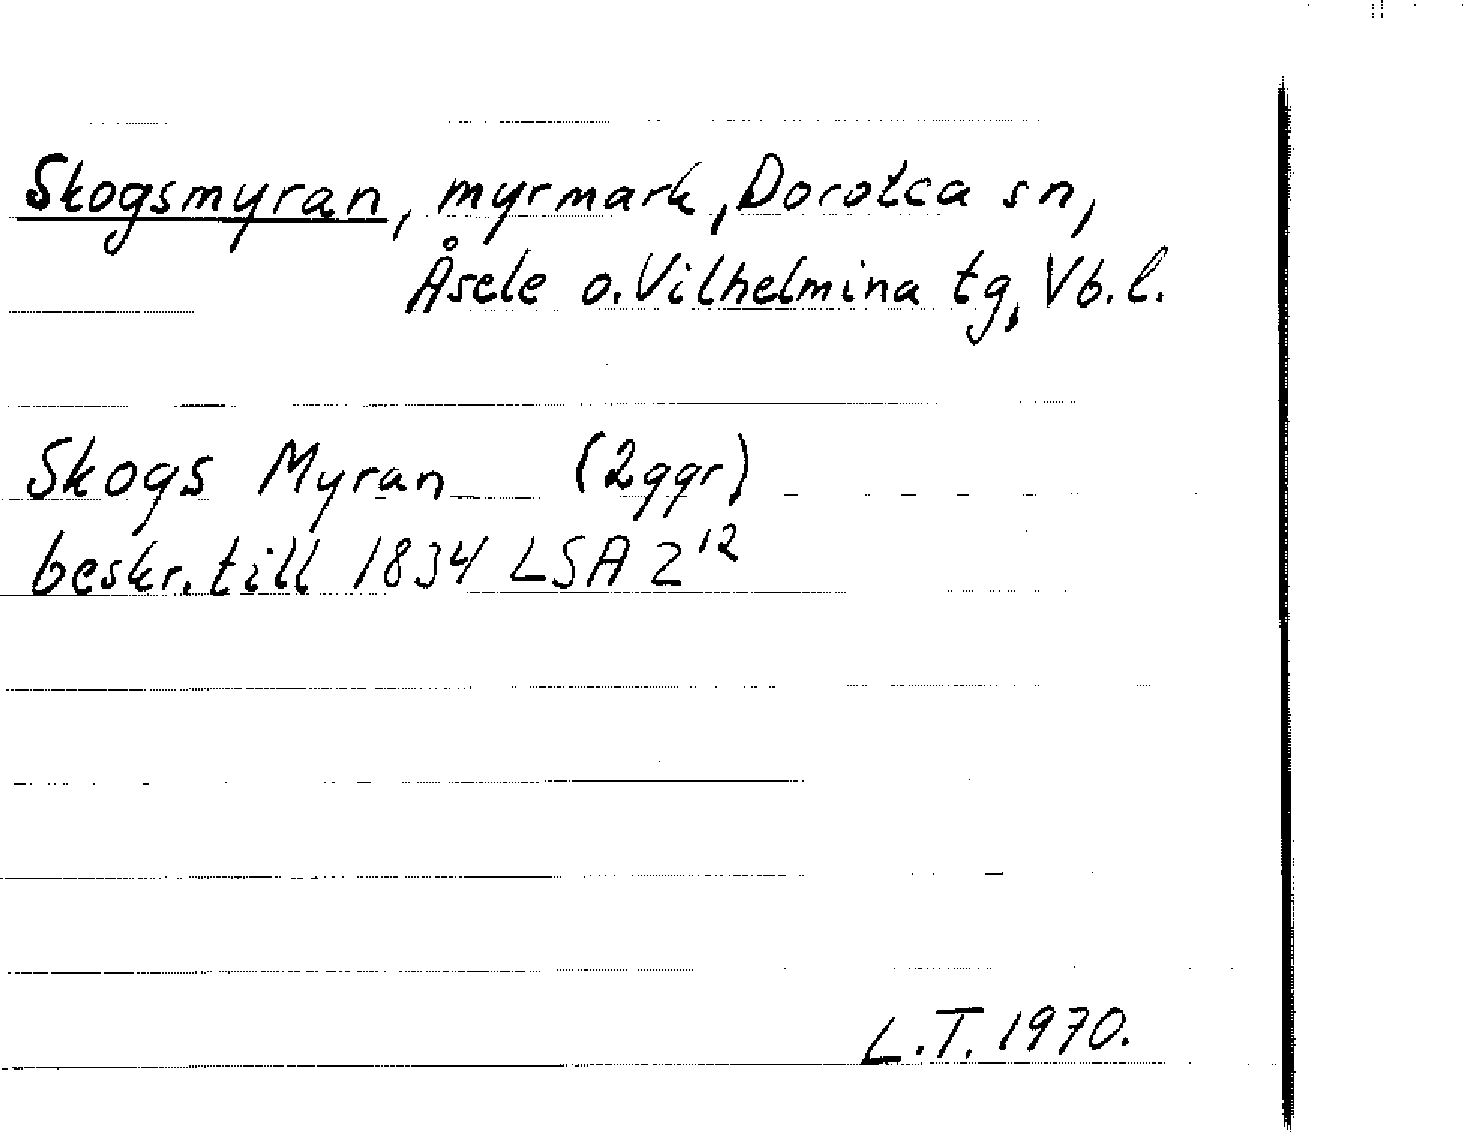 Skogsmyran, myrmark, Dorotea sn,
Åsele o. Vilhelmina tg, Vb. l.
Skogs Myran (2ggr)
beskr. till 1834 LSA Z¹²
L.T. 1970.